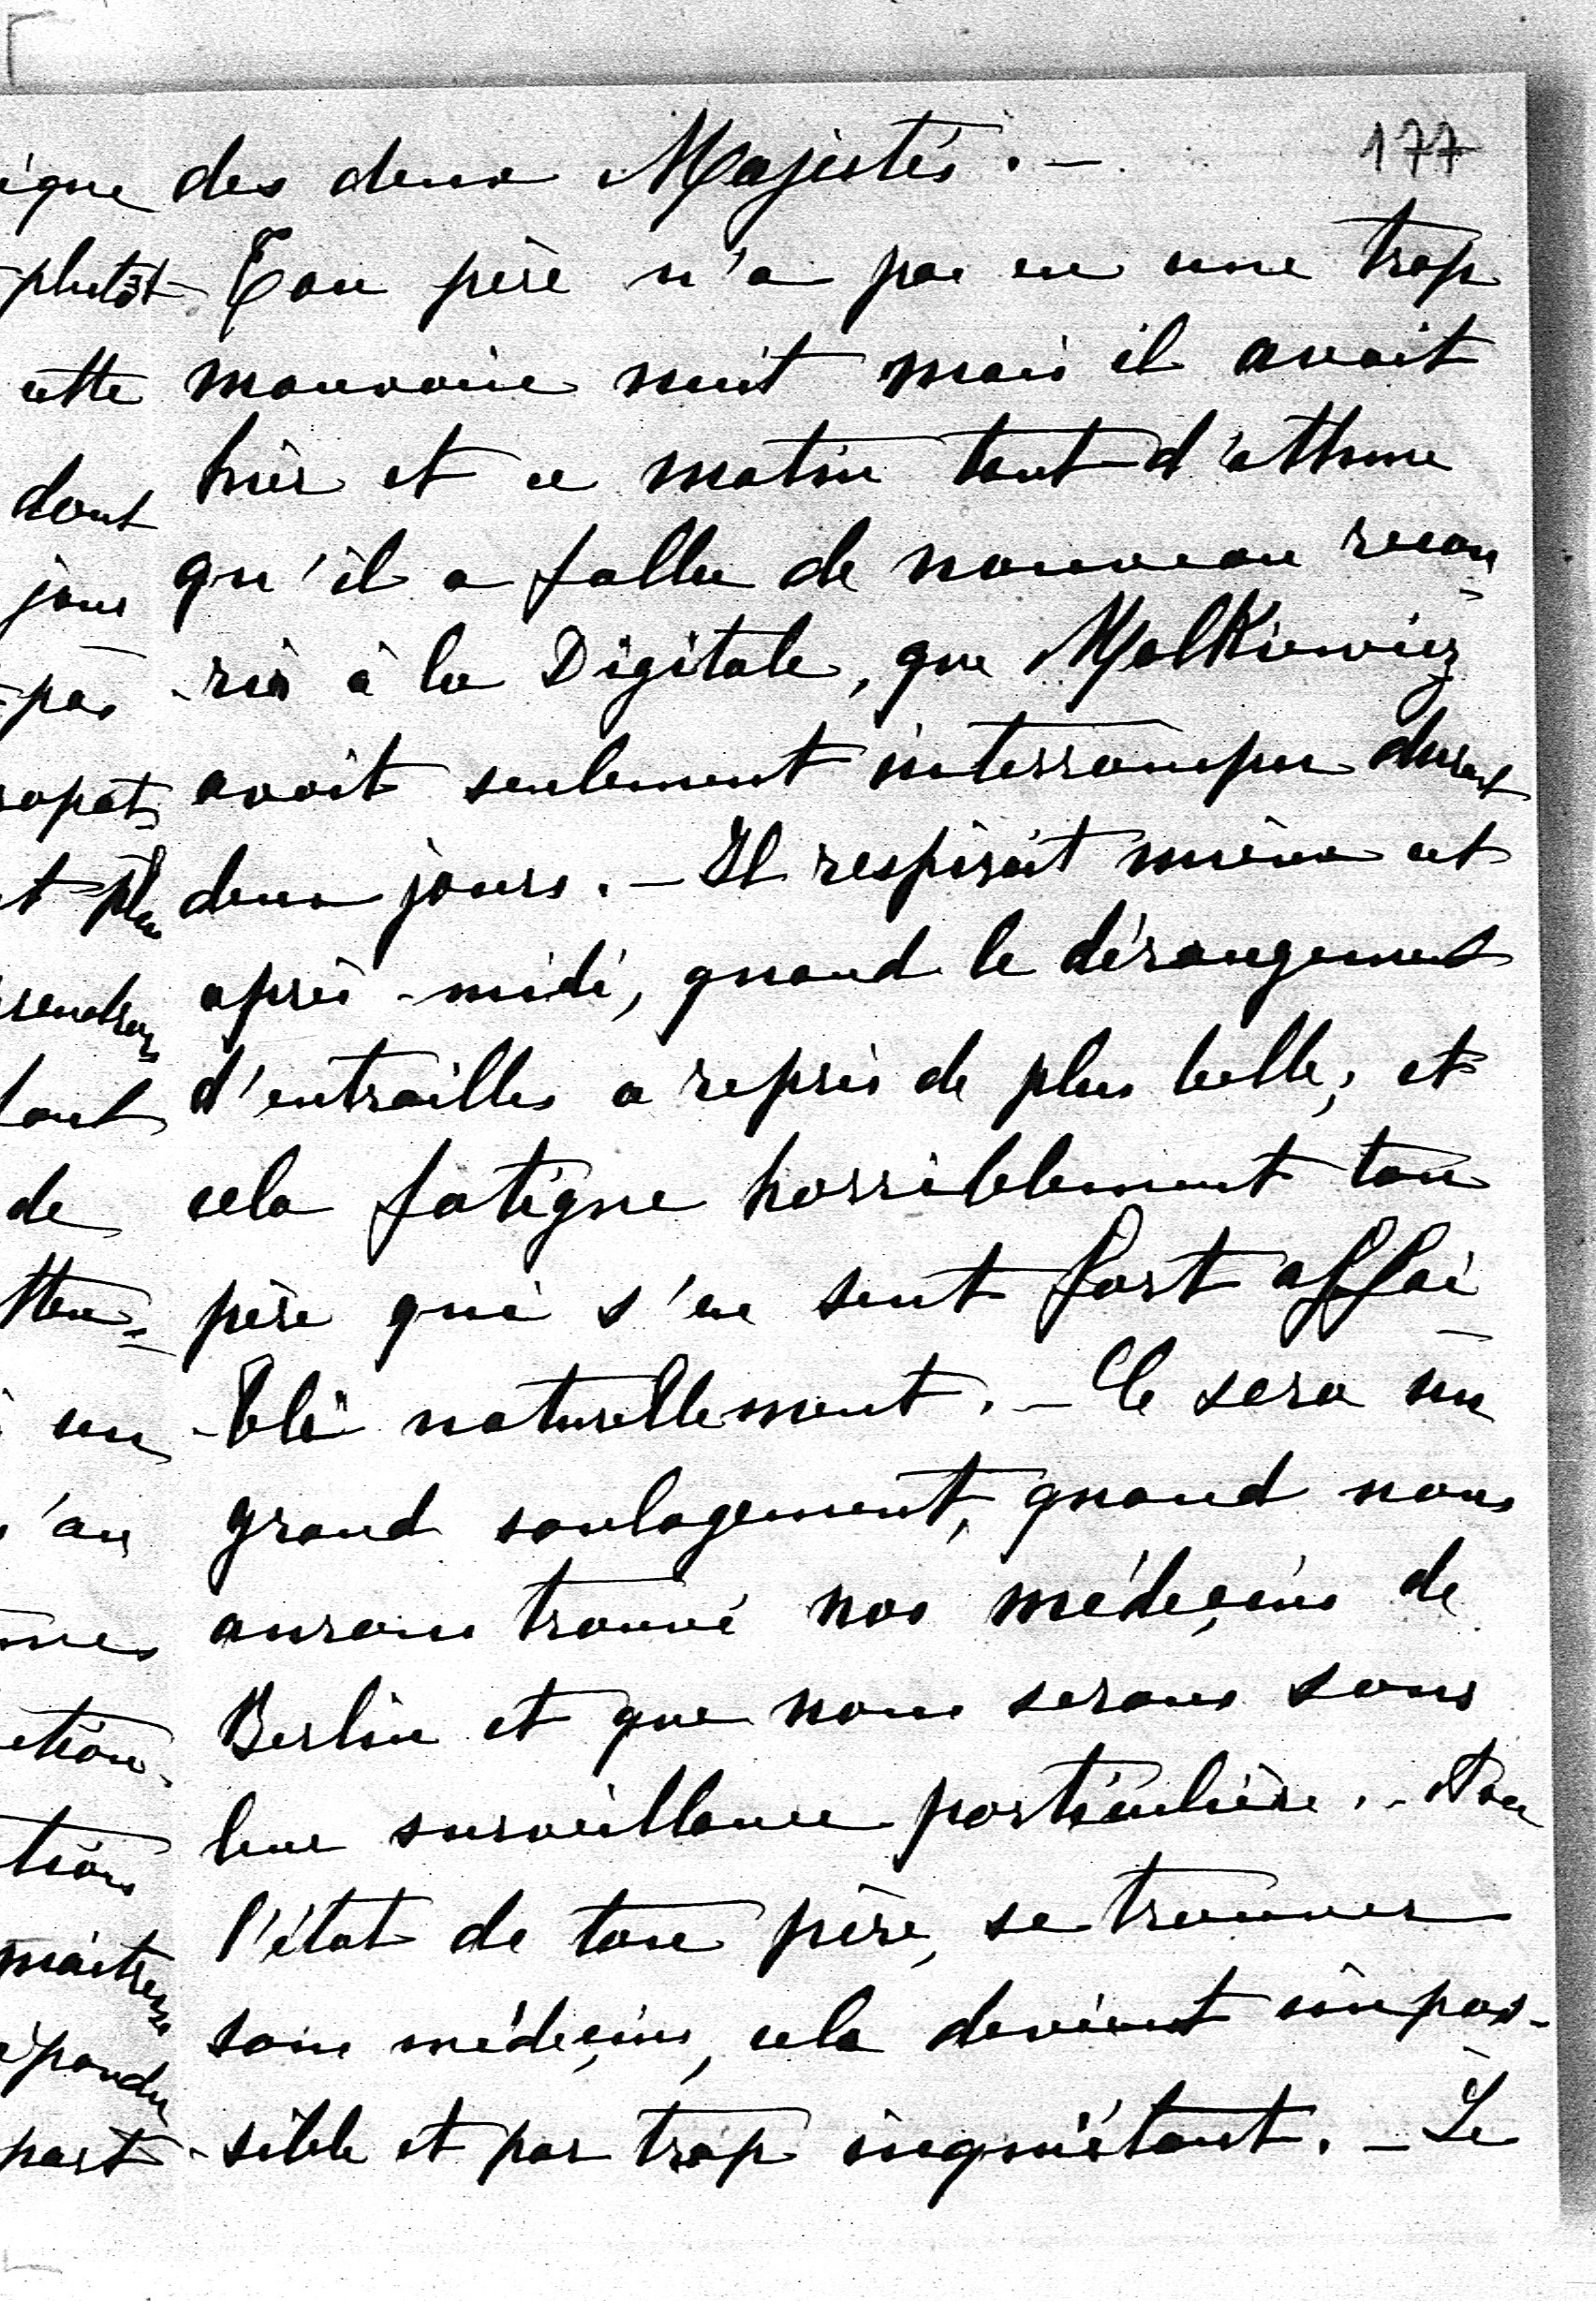 177
des deux Majestés. –
Ton père n'a pas eu une trop
mauvaise nuit mais il avait
hier et ce matin tant d'asthme
qu'il a fallu de nouveau recou-
-rir à la Digitale, que Malkiewicz
avait seulement interrompu durant
deux jours. – Il respirait mieux cet
après-midi, quand le dérangement
d'entrailles a repris de plus belle, et
cela fatigue horriblement ton
père qui s'en sent fort affai-
-bli naturellement. – Ce sera un
grand soulagement, quand nous
aurons trouvé nos médeçins de
Berlin et que nous serons sous
leur surveillance particulière. –
l'état de ton père, se trouver
sans médeçins, cela devient impos-
-sible et par trop inquiétant. – Le
igne
plutôt
cette
dont
jour
pas
t plus
tant
de
un
tion
part